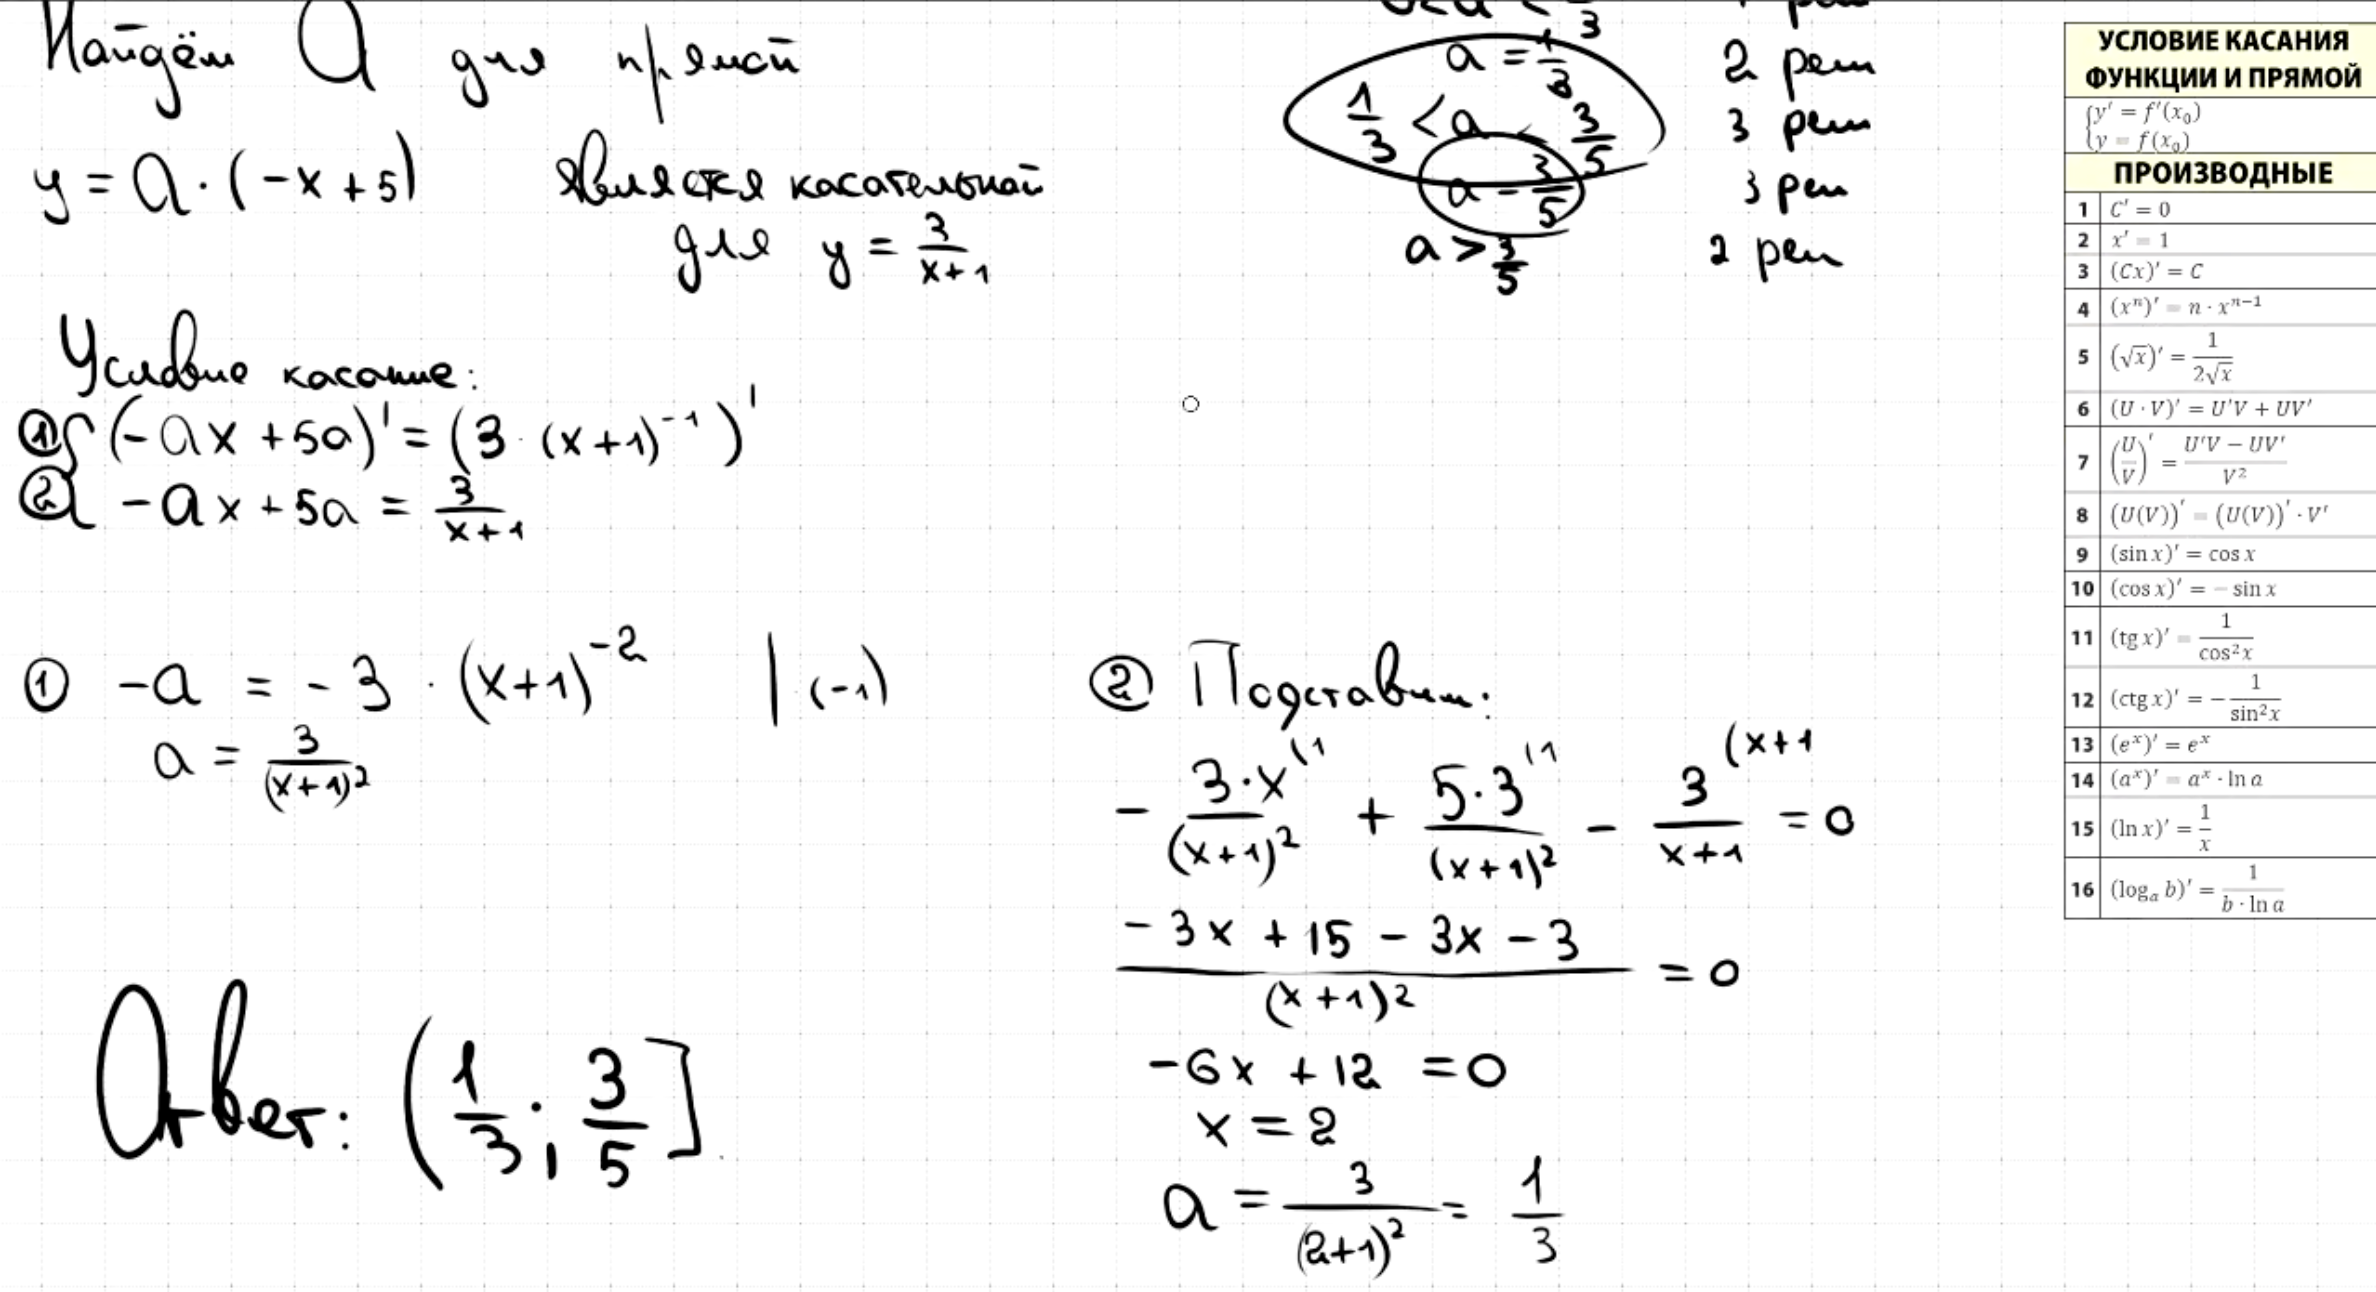 Найдём a для прямой
y = a · (-x + 5) является касательной
для y = 3/(x+1)
a = 1/3 2 реш
1/3 < a < 3/5 3 реш
a = 3/5 3 реш
a > 3/5 2 реш
Условие касание:
① { (-ax + 5a)' = (3 · (x+1)^-1)'
② { -ax + 5a = 3/(x+1)
① -a = -3 · (x+1)^-2 | · (-1)
a = 3/(x+1)^2
② Подставим:
- 3·x^(1/(x+1)^2 + 5·3^(1/(x+1)^2 - 3^(x+1/(x+1) = 0
(-3x + 15 - 3x - 3)/(x+1)^2 = 0
-6x + 12 = 0
x = 2
a = 3/(2+1)^2 = 1/3
Ответ: (1/3; 3/5].
УСЛОВИЕ КАСАНИЯ
ФУНКЦИИ И ПРЯМОЙ
{ y' = f'(x₀)
{ y = f(x₀)
ПРОИЗВОДНЫЕ
1 C' = 0
2 x' = 1
3 (Cx)' = C
4 (xⁿ)' = n · xⁿ⁻¹
5 (√x)' = 1/(2√x)
6 (U · V)' = U'V + UV'
7 (U/V)' = (U'V − UV')/V²
8 (U(V))' = (U(V))' · V'
9 (sin x)' = cos x
10 (cos x)' = − sin x
11 (tg x)' = 1/cos²x
12 (ctg x)' = − 1/sin²x
13 (eˣ)' = eˣ
14 (aˣ)' = aˣ · ln a
15 (ln x)' = 1/x
16 (logₐ b)' = 1/(b · ln a)